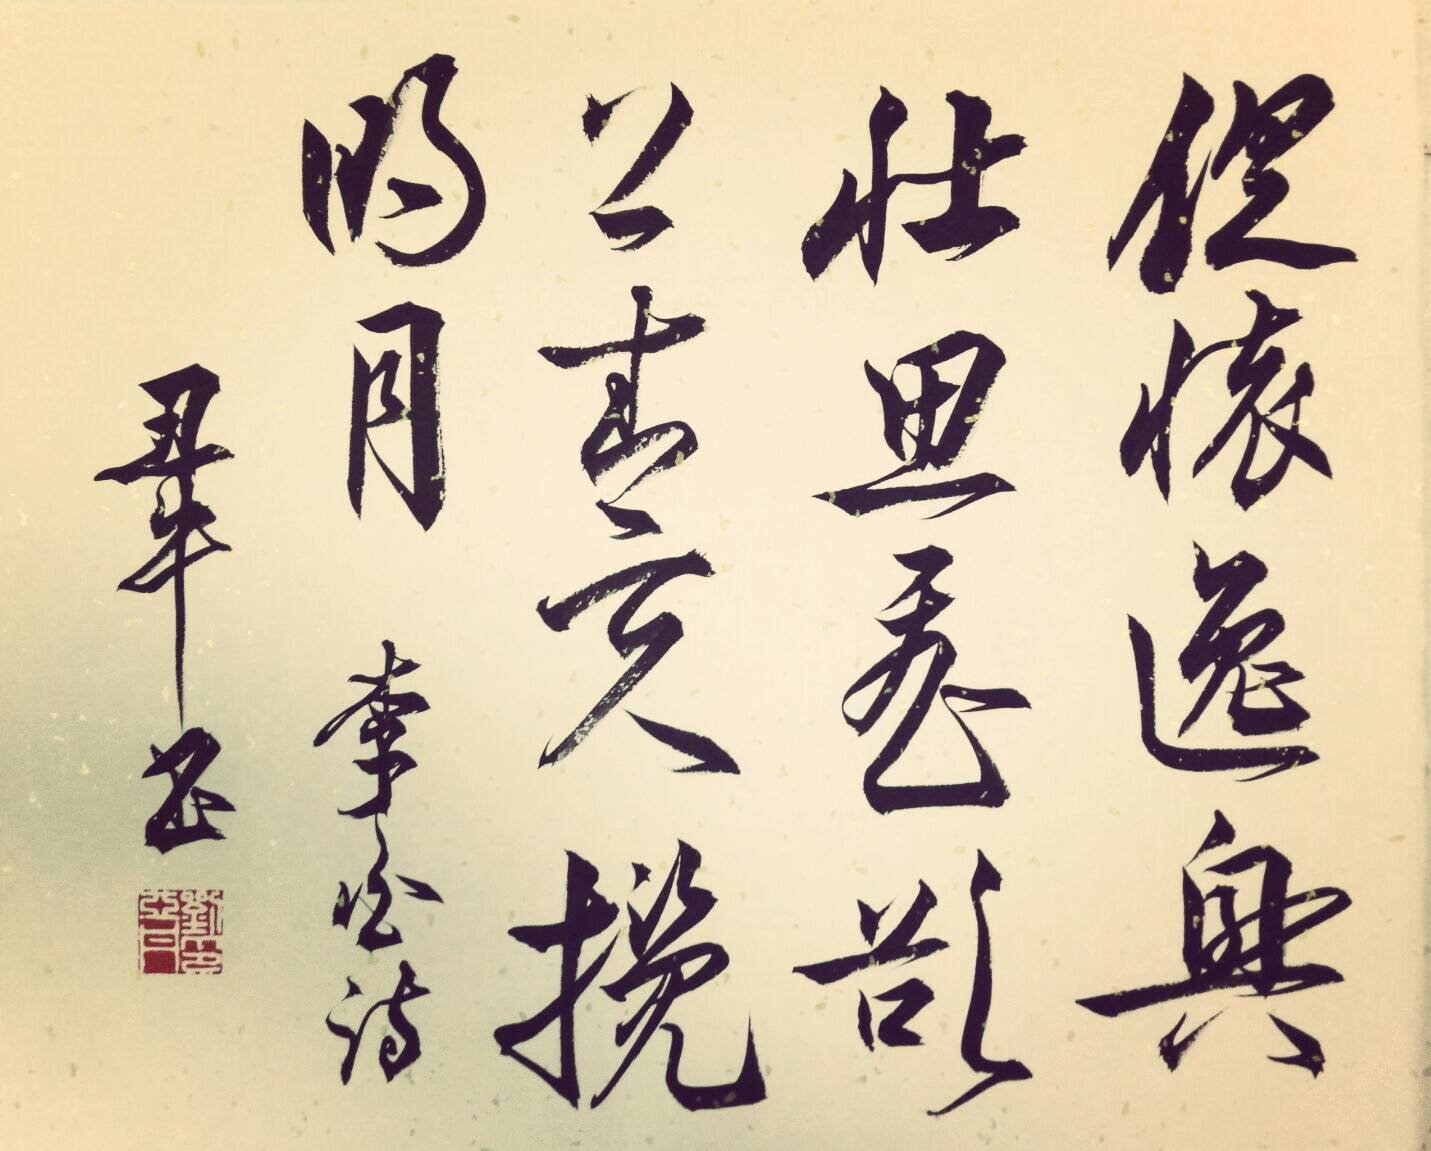 俱懷逸興
壯思飛欲
上青天攬
明月 李白詩
書